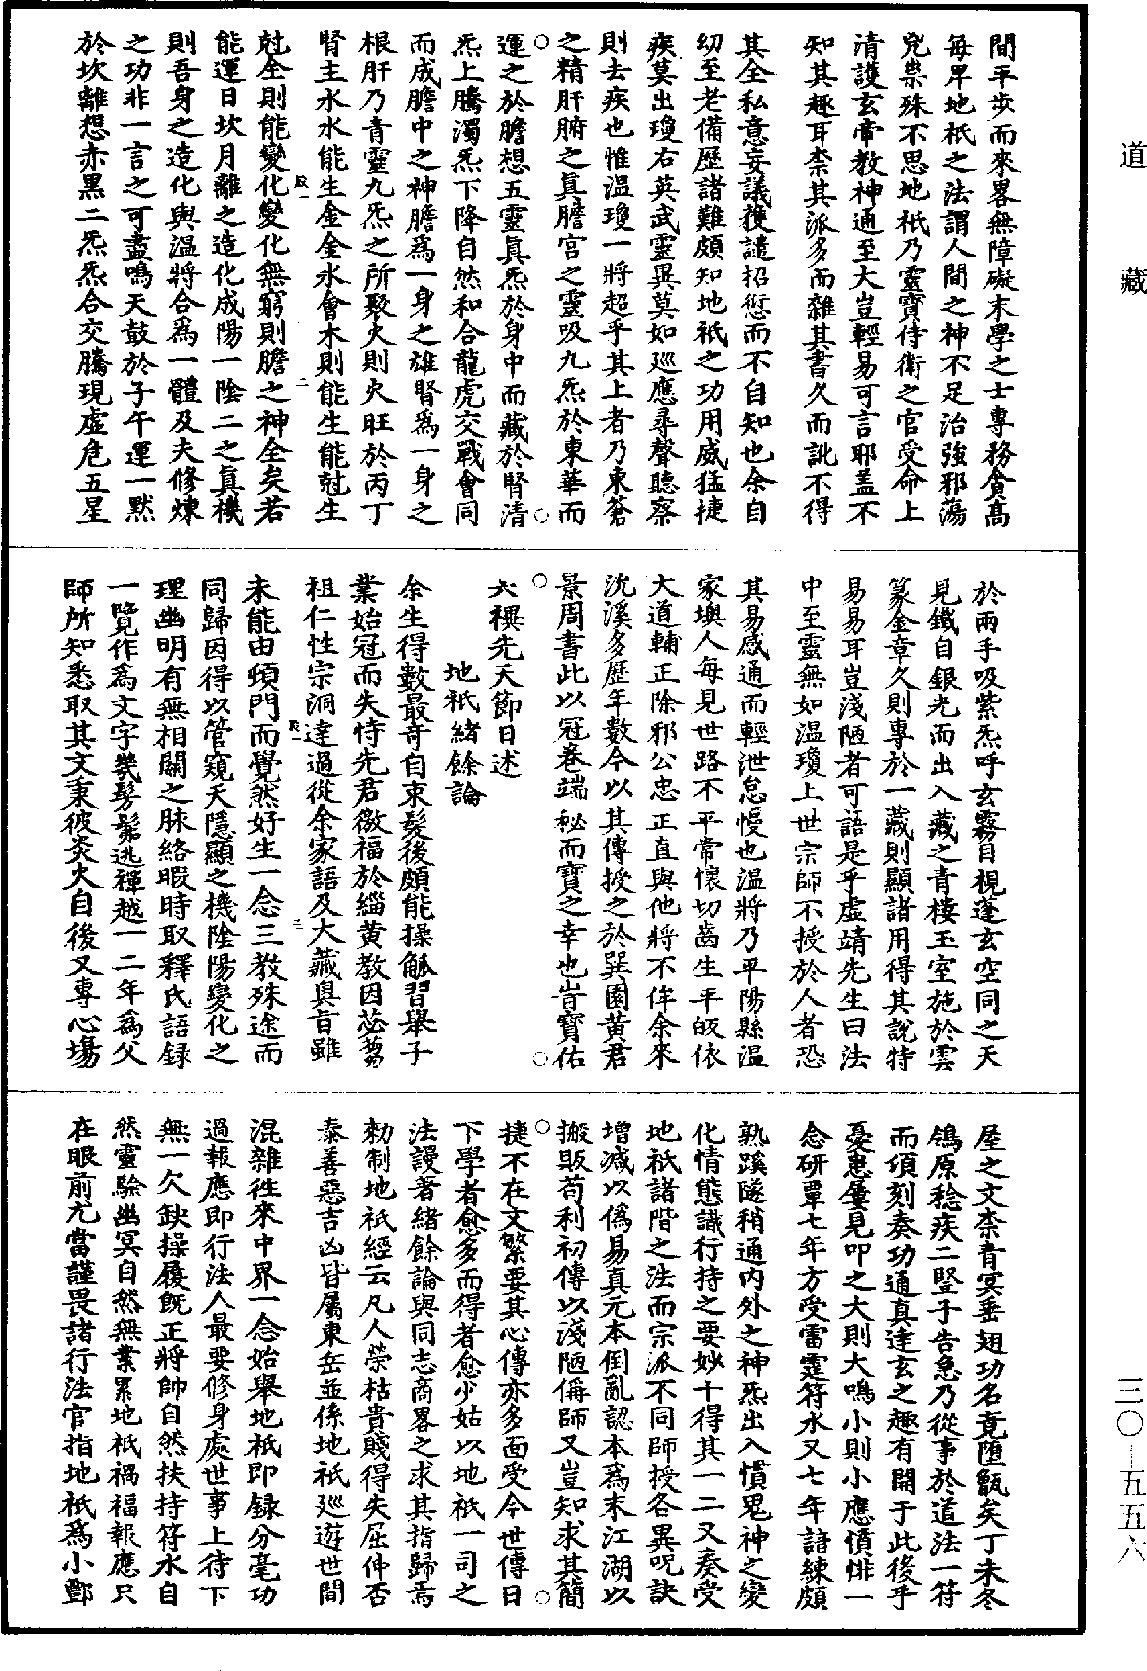 道藏
間平步而來畧無障礙末學之士專務貪高
每卑地祇之法謂人間之神不足治強邪蕩
兇祟殊不思地祇乃靈寶侍衛之官受命上
清護玄帝教神通至大豈輕易可言耶盖不
知其趣耳柰其派多而雜其書久而訛不得
其全私意妄議獲譴招愆而不自知也余自
幼至老備歷諸難頗知地祇之功用威猛捷
疾莫出瓊右英武靈異莫如廵應尋聲聽察
則去疾也惟温瓊一將超乎其上者乃東蒼
之精肝腑之真膽宮之靈吸九炁於東華而
運之於膽想五靈真炁於身中而藏於腎清
炁上騰濁炁下降自然和合龍虎交戰會同
而成膽中之神膽爲一身之雄腎爲一身之
根肝乃青靈九炁之所聚火則火旺於丙丁
腎主水水能生金金水會木則能生能尅生
尅全則能變化變化無窮則膽之神全矣若
能運日坎月離之造化成陽一陰二之真機
則吾身之造化與温將合爲一體及夫修煉
之功非一言之可盡鳴天鼓於子午運一默
於坎離想赤黑二炁炁合交騰現虛危五星
於兩手吸紫炁呼玄霧目視蓬玄空同之天
見鐵自銀光而出入藏之青樓玉室施於雲
篆金章久則專於一藏則顯諸用得其說特
易易耳豈淺陋者可語是乎虛靖先生曰法
中至靈無如温瓊上世宗師不授於人者恐
其易感通而輕泄怠慢也温將乃平陽縣温
家墺人每見世路不平常懷切齒生平皈依
大道輔正除邪公忠正直與他將不侔余來
沈溪多歷年數今以其傳授之於巽園黄君
景周書此以冠卷端秘而寶之幸也旹寶佑
六禩先天節日述
地祇緒餘論
余生得數最竒自束髮後頗能操觚習舉子
業始冠而失恃先君徼福於緇黄教因苾蒭
祖仁性宗洞達過從余家語及大藏與旨雖
未能由頓門而覺然好生一念三教殊途而
同歸因得以管窺天隱顯之機陰陽變化之
理幽明有無相關之脉絡暇時取釋氏語録
一覽作爲文字㡬髣髴迯禪越一二年爲父
師所知悉取其文秉彼炎火自後又專心塲
屋之文柰青冥垂翅功名竟堕甑矣丁未冬
鴒原稔疾二豎子告急乃從事於道法一符
而頃刻奏功通真達玄之趣有開于此後乎
憂患屢見叩之大則大鳴小則小應憤悱一
念研覃七年方受雷霆符水又七年諳練頗
熟蹊隧稍通内外之神炁出入慣鬼神之變
化情態識行持之要妙十得其一二又奏受
地祇諸階之法而宗派不同師授各異呪訣
增減以僞易真元本倒亂認本爲末江湖以
搬販苟利初傳以淺陋偁師又豈知求其簡
捷不在文繁要其心傳亦多面受今世傳日
下學者愈多而得者愈少姑以地祇一司之
法謾著緒餘論與同志商畧之求其指歸焉
勑制地祇經云凡人榮枯貴賤得失屈伸否
泰善惡吉凶皆屬東岳並係地祇廵遊世間
混雜徃來中界一念始舉地祇即録分毫功
過報應即行法人最要修身處世事上待下
無一欠缺操履旣正將帥自然扶持符水自
然靈驗幽冥自然無業累地祇禍福報應只
在眼前尤當謹畏諸行法官指地祇爲小酆
三〇—五五六